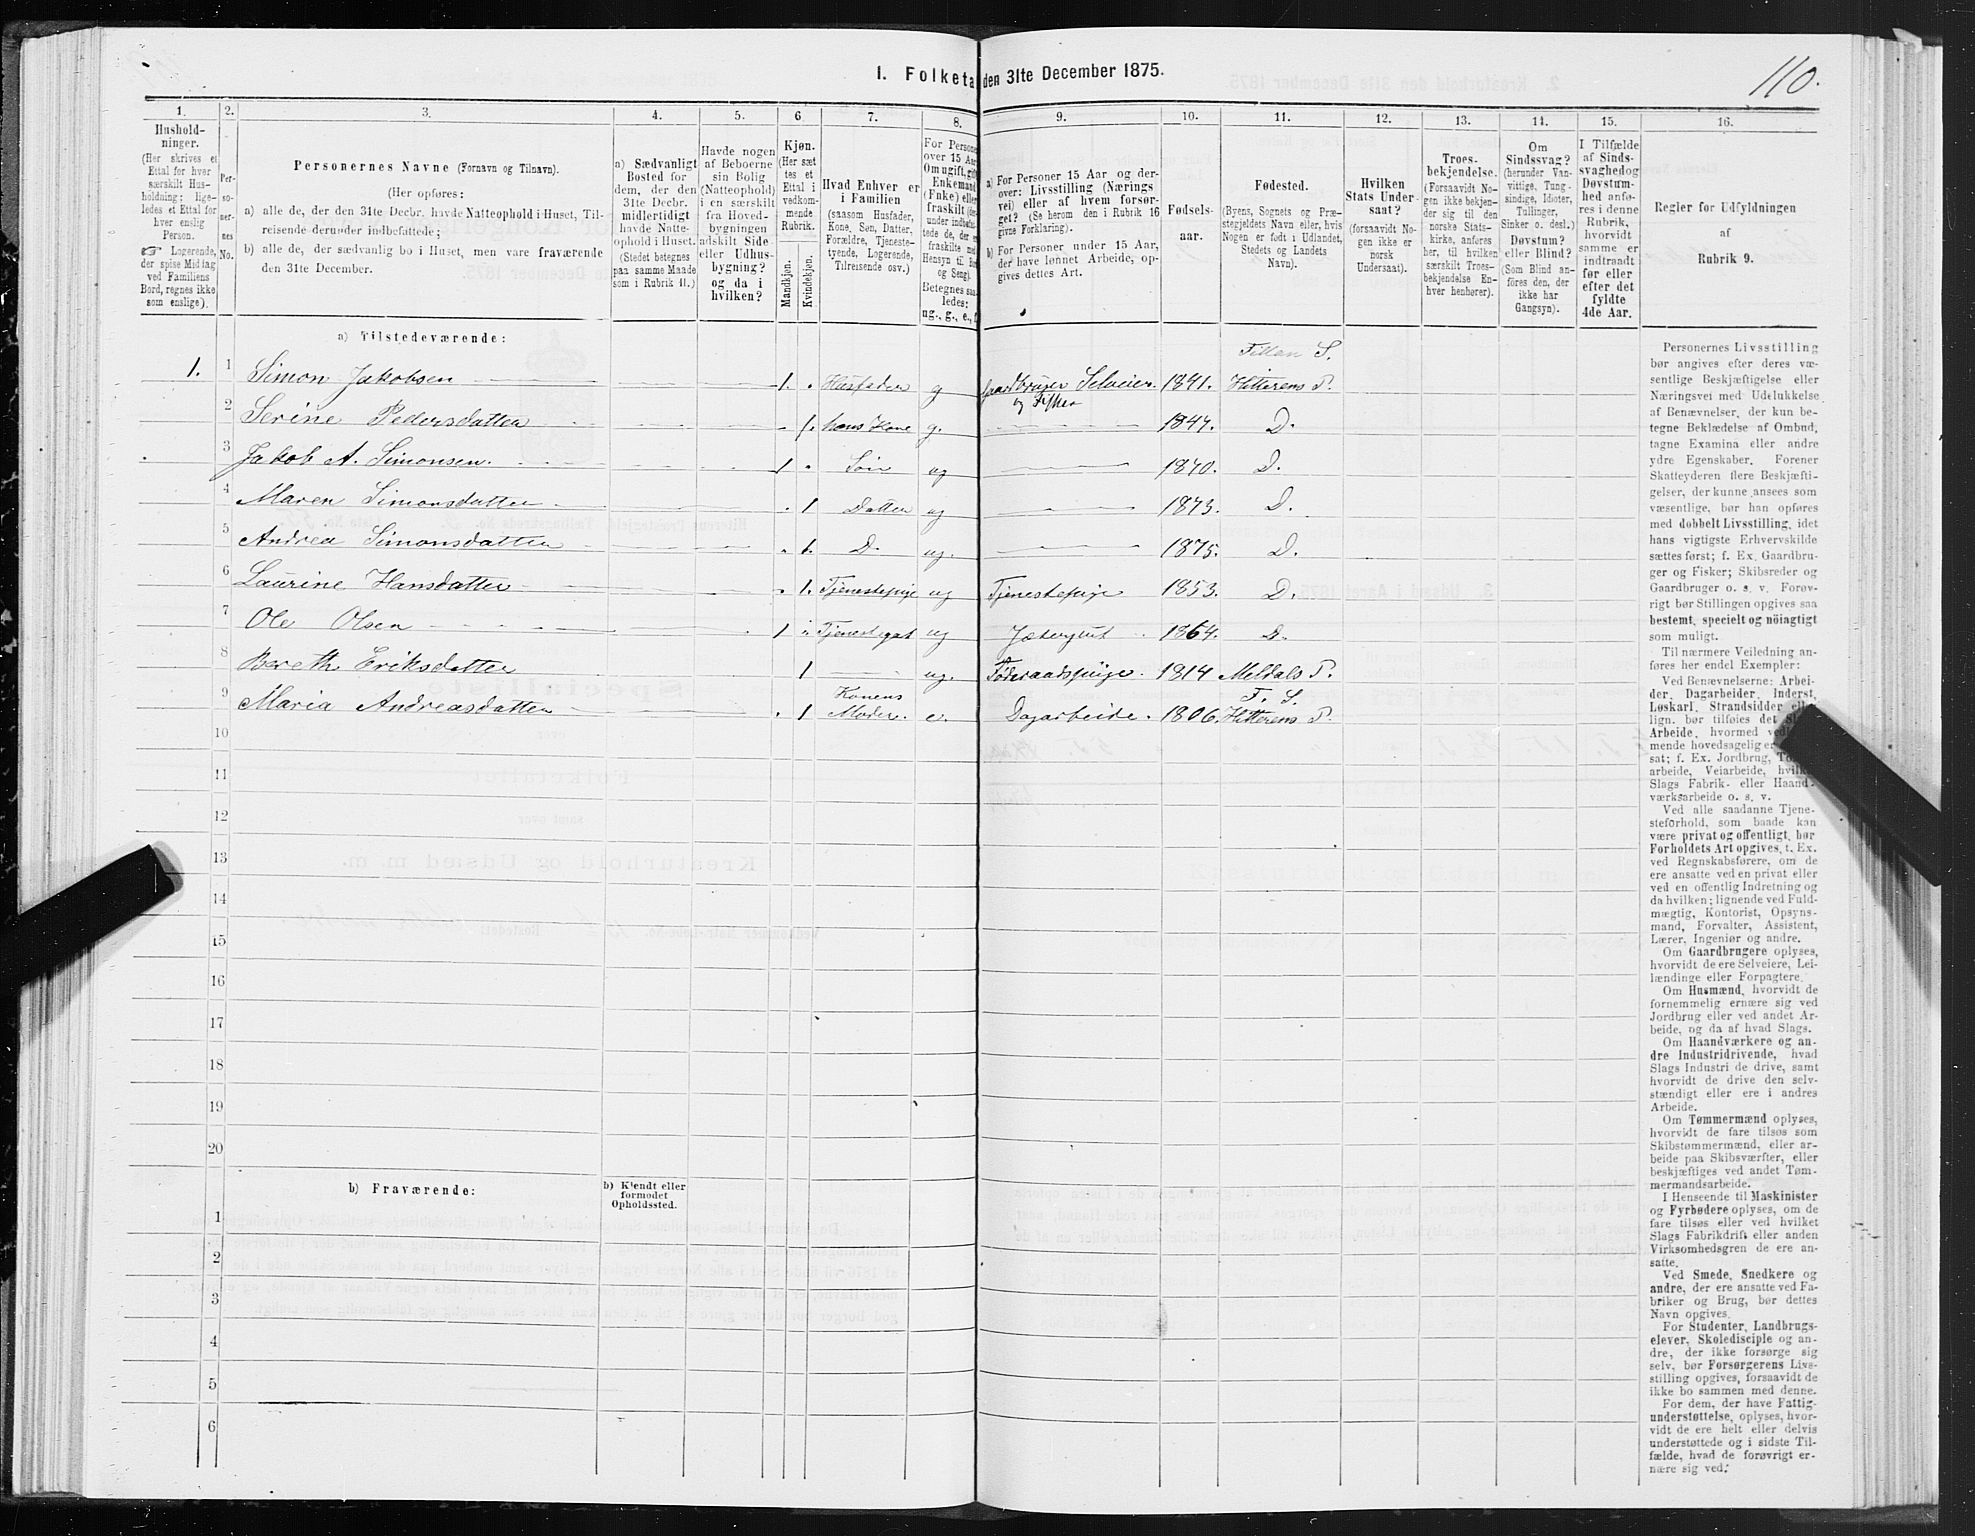 1. Folketa den 31te December 1875.
110.
1.
Hushold-
ninger.
(Her skrives et
Ettal for hver
særskilt Hus-
holdning; lige-
ledes et Ettal for
hver enslig
Person.
Logerende,
der spise Middag
ved Familiens
Bord, regnes ikke
som enslige).
2.
Per-
so-
ner-
nes
No.
3.
Personernes Navne (Fornavn og Tilnavn).
(Her opføres:
a) alle de, der den 31te Decbr. havde Natteophold i Huset, Til-
reisende derunder indbefattede;
b) alle de, der sædvanlig bo i Huset, men vare fraværende
den 31te December.
4.
a) Sædvanligt
Bosted for
dem, der den
31te Decbr.
midlertidigt
havde Natte-
ophold i Huset.
(Stedet betegnes
paa samme Maade
som i Rubrik 11.)
5.
Havde nogen
af Beboerne
sin Bolig
(Natteophold)
i en særskilt
fra Hoved-
bygningen
adskilt Side-
eller Udhus-
bygning?
og da i
hvilken?
6
Kjøn.
(Her sæt
tes et
Ettal i
vedkom-
mende
Rubrik.
Mandkjøn.
Kvindekjøn.
7.
Hvad Enhver er
i Familien
(saasom Husfader,
Kone, Søn, Datter,
Forældre, Tjeneste-
tyende, Logerende,
Tilreisende osv.)
8.
For Persone
over 15 Aa
Om ugift, gift
Enkemand
(Enke) elle
fraskilt
ledes:
ug., g., e., f
9.
a) For Personer 15 Aar og der-
over: Livsstilling (Nærings
vei) eller af hvem forsør-
get? (Se herom den i Rubrik 16
givne Forklaring).
b) For Personer under 15 Aar,
der have lønnet Arbeide, op-
gives dettes Art.
10.
Fødsels-
aar.
11.
Fødested.
(Byens, Sognets og Præ-
stegjeldets Navn eller, hvis
Nogen er født i Udlandet,
Stedets og Landets
Navn).
12.
Hvilken
Stats Under-
saat?
(forsaavidt No-
gen ikke er
norsk
Undersaat).
13.
Troes-
bekjendelse.
(Forsaavidt No-
gen ikke bekjen-
der sig til den
norske Stats-
kirke, anføres
her, til hvilken
særskilt Troes-
bekjendelse En-
hver henhører).
14.
Om
Sindssvag?
(herunder Van-
vittige, Tung-
sindige, Idioter,
Tullinger,
Sinker o. desl.)
Døvstum?
eller Blind?
(Som Blind an-
føres den, der
ikke har
Gangsyn).
15.
I Tilfælde
af Sinds-
svaghed og
Døvstum-
hed anfø-
res i denne
Rubrik,
hvorvidt
samme er
indtraadt
før eller
efter det
fyldte
4de Aar.
16.
Regler for Udfyldningen
af
Rubrik 9.
a) Tilstedeværende:
Fillan S.
1. 1 Simon Jakobsen 1. Husfader g Gaardbruger Selveier 1841. Hitterens P.
og Fisker
2 Serine Pedersdatter 1. hans Kone g. 1847. D.
3 Jakob A. Simonsen. 1 Søn ug 1870. D.
4 Maren Simonsdatter 1 Datter ug 1873. D.
5 Andrea Simonsdatter 1. D. ug. 1875. D.
6 Laurine Hansdatter 1. Tjenestepige ug Tjenestepige 1853. D.
7 Ole Olsen 1 Tjenestegut ug Jætergut 1864. D.
8 Bereth Eriksdatter 1 ug. Føderaadspige. 1814 Meldals P.
Konens F. S.
9 Maria Andreasdatter 1 Moder. e. Dagarbeide. 1806. Hitterens P.
10
11
12
13
14
15
16
17
18
19
20
b) Fraværende:
b) Kjendt eller
formodet
Opholdssted.
1
2
3
4
5
6
Personernes Livsstilling
bør angives efter deres væ-
sentlige Beskjæftigelse eller
Næringsvei med Udelukkelse
af Benævnelser, der kun be-
tegne Beklædelse af Ombud,
tagne Examina eller andre
ydre Egenskaber. Forener
Skatteyderen flere Beskjæfti-
gelser, der kunne ansees som
væsentlige, bør han opføres
med dobbelt Livsstilling, idet
hans vigtigste Erhvervskilde
sættes først; f. Ex. Gaardbru-
ger og Fisker; Skibsreder og
Gaardbruger o. s. v. Forøv-
rigt bør Stillingen opgives saa
bestemt, specielt og nöiagtigt
som muligt.
Til nærmere Veiledning an-
føres her endel Exempler:
Ved Benævnelserne: Arbei-
der, Dagarbeider, Inderst,
Løskarl, Strandsidder eller
lign. bør tilføies det Sl
Arbeide, hvormed ved
mende hovedsagelig er
sat; f. Ex. Jordbrug, To
arbeide, Veiarbeide, hvilk
Slags Fabrik- eller Haand-
værksarbeide o. s. v.
Ved alle saadanne Tjene-
steforhold, som baade kan
være privat og offentligt, bør
Forholdets Art opgives, t. Ex.
ved Regnskabsførere, om de
ere ansatte ved en privat eller
ved en offentlig Indretning og
da hvilken; lignende ved Fuld-
mægtig, Kontorist, Opsyns-
mand, Forvalter, Assistent,
Lærer, Ingeniør og andre.
Om Gaardbrugere oplyses,
hvorvidt de ere Selveiere, Lei-
lændinge eller Forpagtere.
Om Husmænd, hvorvidt de
fornemmelig ernære sig ved
Jordbrug eller ved andet Ar-
beide, og da af hvad Slags.
Om Haandværkere og an-
dre Industridrivende, hvad
Slags Industri de drive, samt
hvorvidt de drive den selv-
stændigt eller ere i andres
Arbeide.
Om Tømmermænd oplyses,
hvorvidt de fare tilsøs som
Skibstømmermænd, eller ar-
beide paa Skibsværfter, eller
beskjæftiges ved andet Tøm-
mermandsarbeide.
I Henseende til Maskinister
og Fyrbødere oplyses, om de
fare tilsøs eller ved hvilket
Slags Fabrikdrift eller anden
Virksomhedsgren de ere an-
satte.
Ved Smede, Snedkere og
andre, der ere ansatte ved Fa-
briker og Brug, bør dettes
Navn opgives.
For Studenter, Landbrugs-
elever, Skoledisciple og an-
dre, der ikke forsørge sig
selv, bør Forsørgerens Livs-
stilling opgives, forsaavidt de
ikke bo sammen med denne.
For dem, der have Fattig-
understøttelse, oplyses, hvor-
vidt de ere helt eller delvis
understøttede og i sidste Til-
fælde, hvad de forøvrigt er-
nære sig ved.